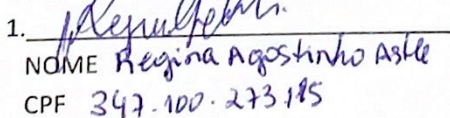 1.
NOME Regina Agostinho Astle
CPF 347.100.273,15